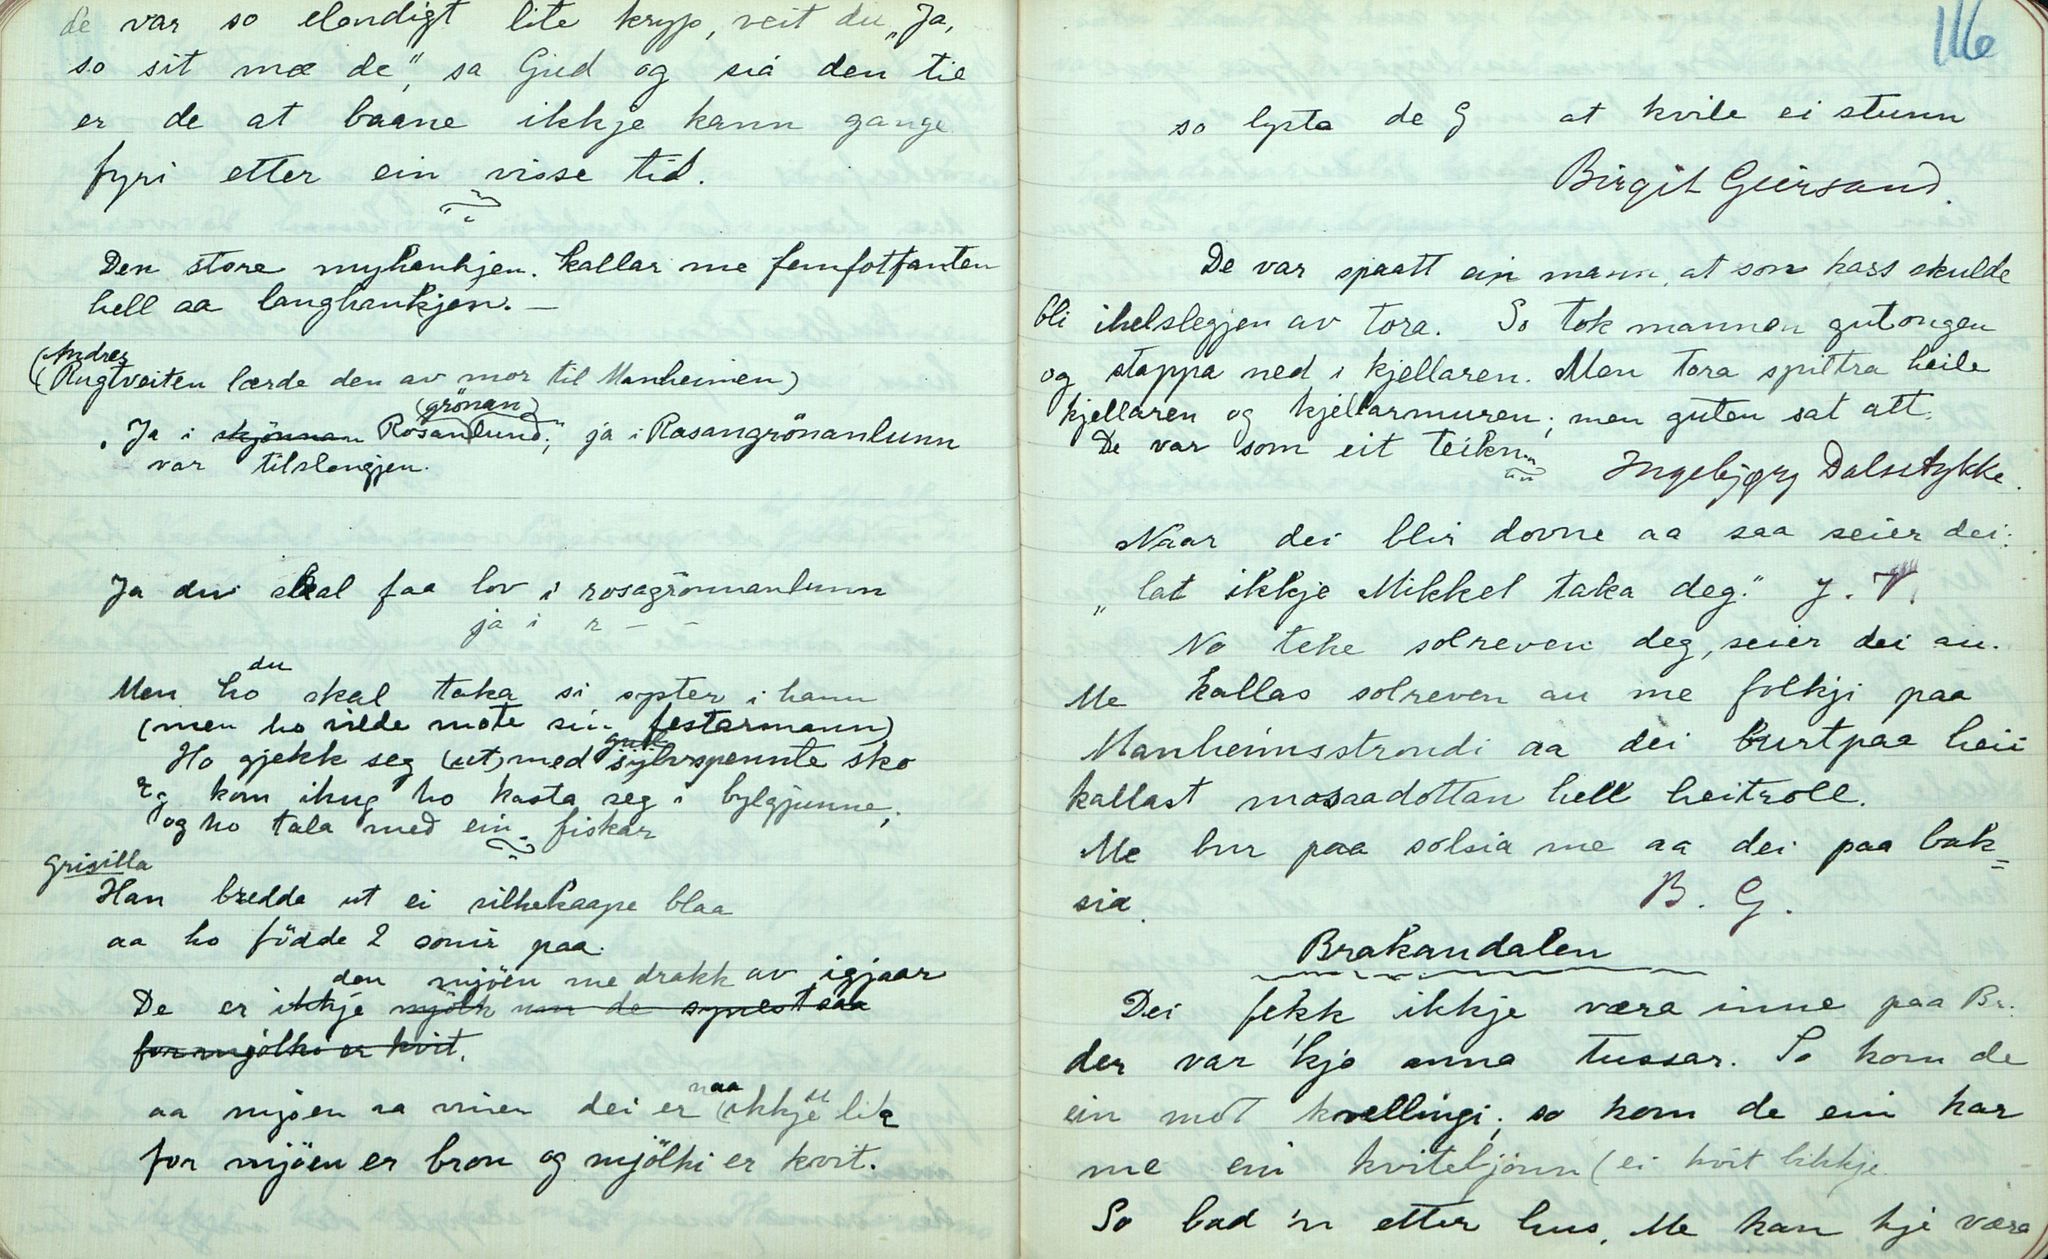 de var so elendigt lite kryp, veit du „Ja,
so sit mæ de", sa Gud og sia den tie
er de at baane ikkje kann gange
fyri etter ein visse tid.
Den store myhankjen. kallar me femfotfanten
hell aa langhankjen. —
(Andres
(Rugtveiten lærde den av mor til Manheimen)
(grönan)
„Ja i skjönnan Rosanlund;" ja i Rosangrönanlunn
var tilslengjen.
Ja du skal faa lov i rosagrönnanlunn
ja i r — —
du
Men ho skal taka si syster i hann
(men ho vilde møte sin festarmann)
gull
Ho gjekk seg (ut) med sylvspennte sko
Eg kom ihug ho kasta seg i bylgjunne;
og ho tala med ein fiskar
Grisilla
Han bredde ut ei silkekaape blaa
aa ho födde 2 sonir paa.
den mjöen me drakk av igjaar
De er ikkje mjölk um de synest saa
for mjölki er kvit.
naa
aa mjöen aa vinen dei er (ikkje lik
for mjöen er bron og mjölki er kvit.
116
so lysta de G at kvile ei stunn
Birgit Geirsand.
De var spaatt ein mann, at son hass skulde
bli ihelslegjen av tora. So tok mannen gutongen
og stappa ned i kjellaren. Men tora splittra heile
kjellaren og kjellarmuren; men guten sat att.
De var som eit teikn.
Ingebjørg Dalsstykke.
Naar dei blir dovne aa saa seier dei:
„lat ikkje Mikkel taka deg."
No teke solreven deg, seier dei au.
Me kallas solreven au me folkji paa
Manheimsstrondi aa dei burtpaa heii
kallast mosaadottan hell heitroll.
Me bur paa solsia me aa dei paa bak=
sia.
B. G.
Brakandalen
Dei fekk ikkje væra inne paa Br.
der var 'kjo anna tussar. So kom de
ein mot kvellingi; so kom de ein kar
me ein kvitebjønn (ei kvit bikkje
So bad 'n etter hus. Me kan kje væra